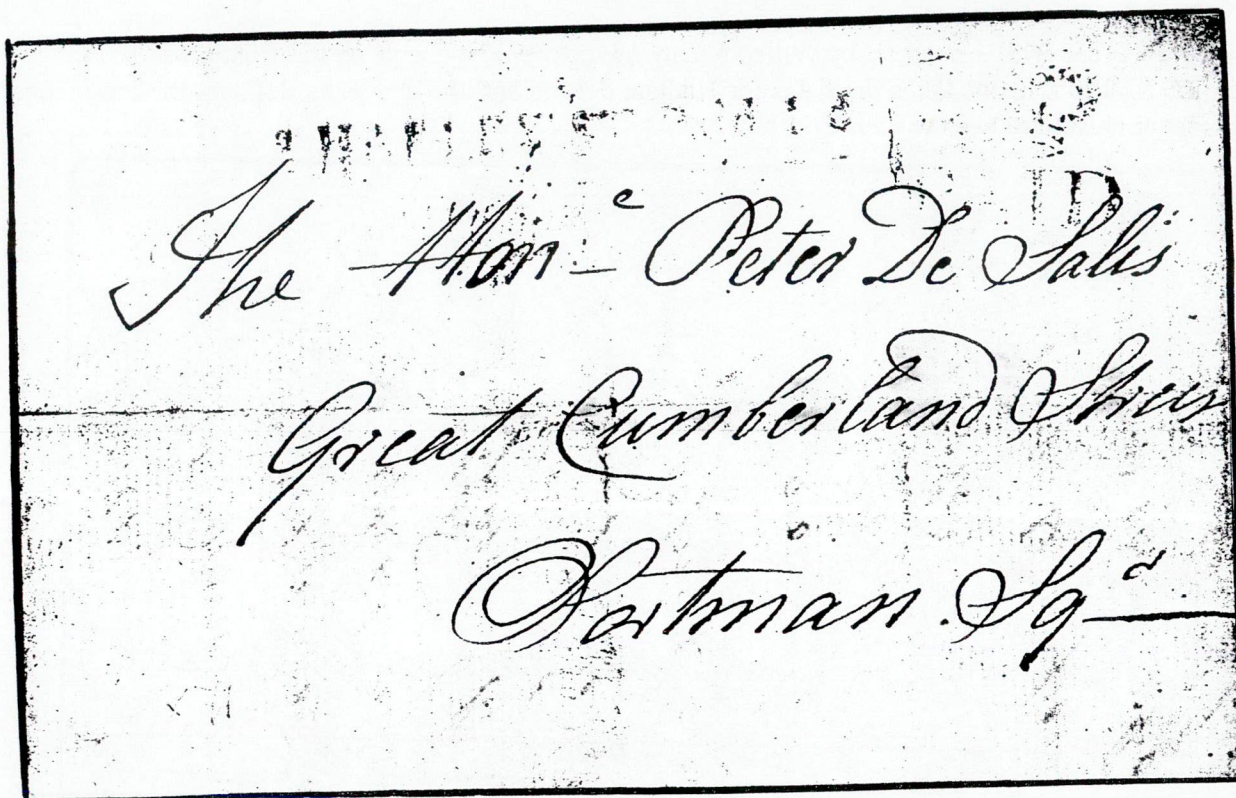 The Honᵉ Peter De Salis
Great Cumberland Street
Portman Sqʳ